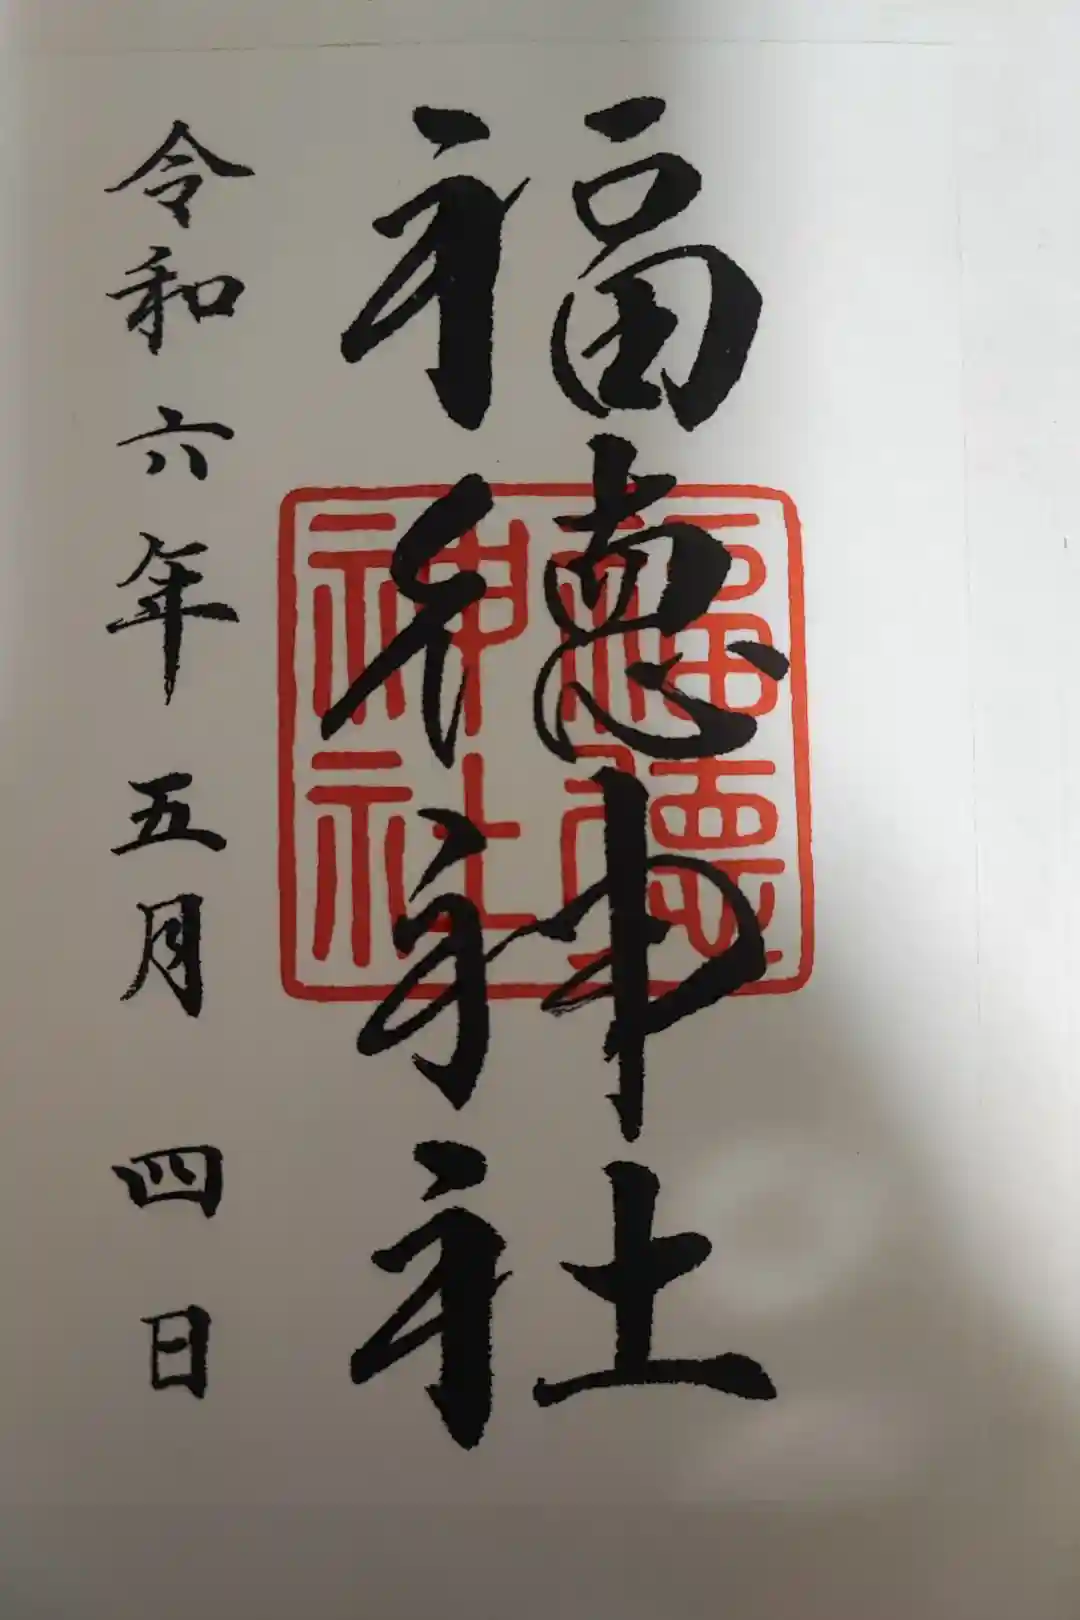 福徳神社
福徳神社
令和六年五月四日